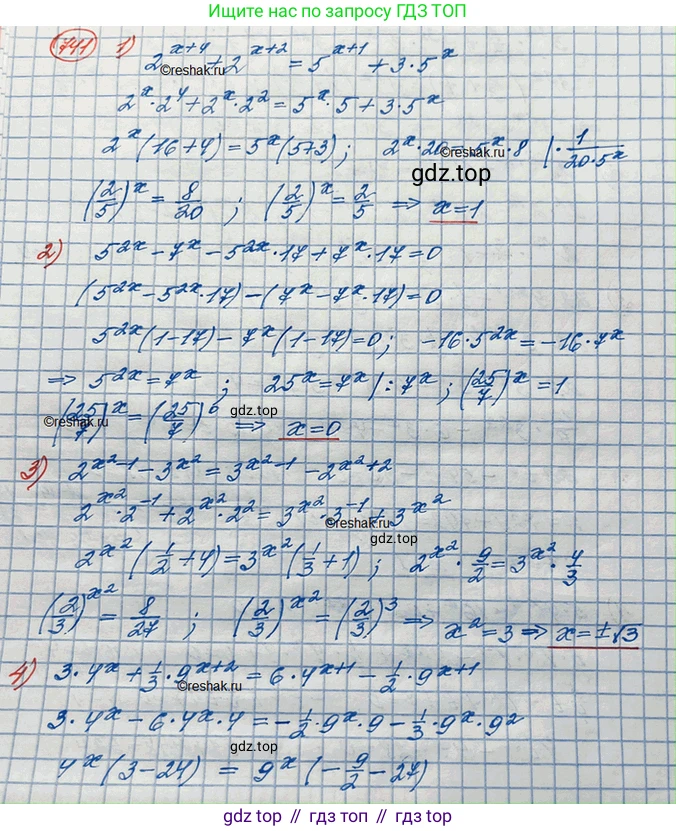 Ищите нас по запросу ГДЗ ТОП
741 1) 2^{x+4} + 2^{x+2} = 5^{x+1} + 3·5^x
©reshak.ru
2^x·2^4 + 2^x·2^2 = 5^x·5 + 3·5^x
2^x(16+4) = 5^x(5+3); 2^x·20 = 5^x·8 |·1/(20·5^x)
©reshak.ru
gdz.top
(2/5)^x = 8/20; (2/5)^x = 2/5 ⇒ x=1
2) 5^{2x} - 7^x - 5^{2x}·17 + 7^x·17 = 0
(5^{2x} - 5^{2x}·17) - (7^x - 7^x·17) = 0
5^{2x}(1-17) - 7^x(1-17) = 0; -16·5^{2x} = -16·7^x
⇒ 5^{2x} = 7^x; 25^x = 7^x |:7^x; (25/7)^x = 1
(25/7)^x = (25/7)^0 ⇒ x=0
©reshak.ru
gdz.top
3) 2^{x^2-1} - 3^{x^2} = 3^{x^2-1} - 2^{x^2+2}
2^{x^2}·2^{-1} + 2^{x^2}·2^2 = 3^{x^2}·3^{-1} + 3^{x^2}
©reshak.ru
gdz.top
2^{x^2}(1/2+4) = 3^{x^2}(1/3+1); 2^{x^2}·9/2 = 3^{x^2}·4/3
(2/3)^{x^2} = 8/27; (2/3)^{x^2} = (2/3)^3 ⇒ x^2=3 ⇒ x=±√3
4) 3·4^x + 1/3·9^{x+2} = 6·4^{x+1} - 1/2·9^{x+1}
©reshak.ru
3·4^x - 6·4^x·4 = -1/2·9^x·9 - 1/3·9^x·9^2
gdz.top
4^x(3-24) = 9^x(-9/2-27)
gdz.top // гдз.топ // gdz.top